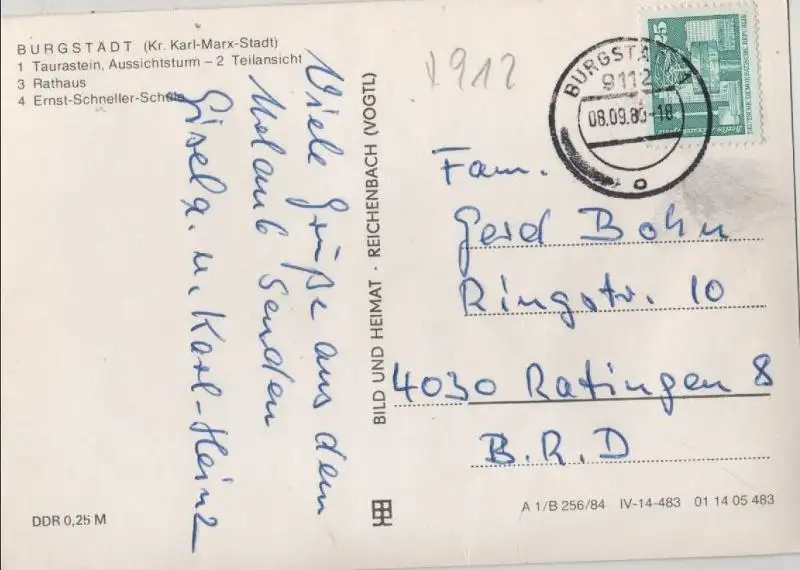 BURGSTÄDT (Kr. Karl-Marx-Stadt)
1 Taurastein, Aussichtsturm – 2 Teilansicht
3 Rathaus
4 Ernst-Schneller-Schule
Viele Grüße aus dem
Urlaub senden
Gisela u. Karl-Heinz
DDR 0,25 M
BILD UND HEIMAT · REICHENBACH (VOGTL)
V912
BURGSTÄ
9112
08.09.86-18
25
DEUTSCHE DEMOKRATISCHE REPUBLIK
Fam.
Gerd Bohn
Ringstr. 10
4030 Ratingen 8
B.R.D
A 1/B 256/84 IV-14-483 01 14 05 483